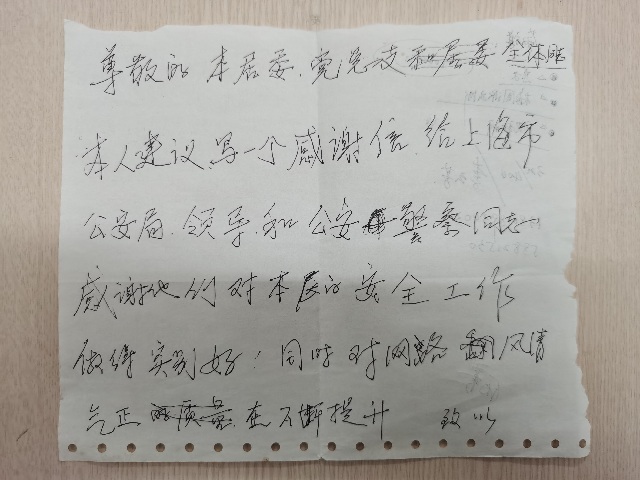 尊敬的本居委、党总支和居委全体同
本人建议写一个感谢信给上海市
公安局、领导、和公安警察同志
感谢他们对本居的安全工作
做得实别好！同时对网络风清
气正 在不断提升 致以